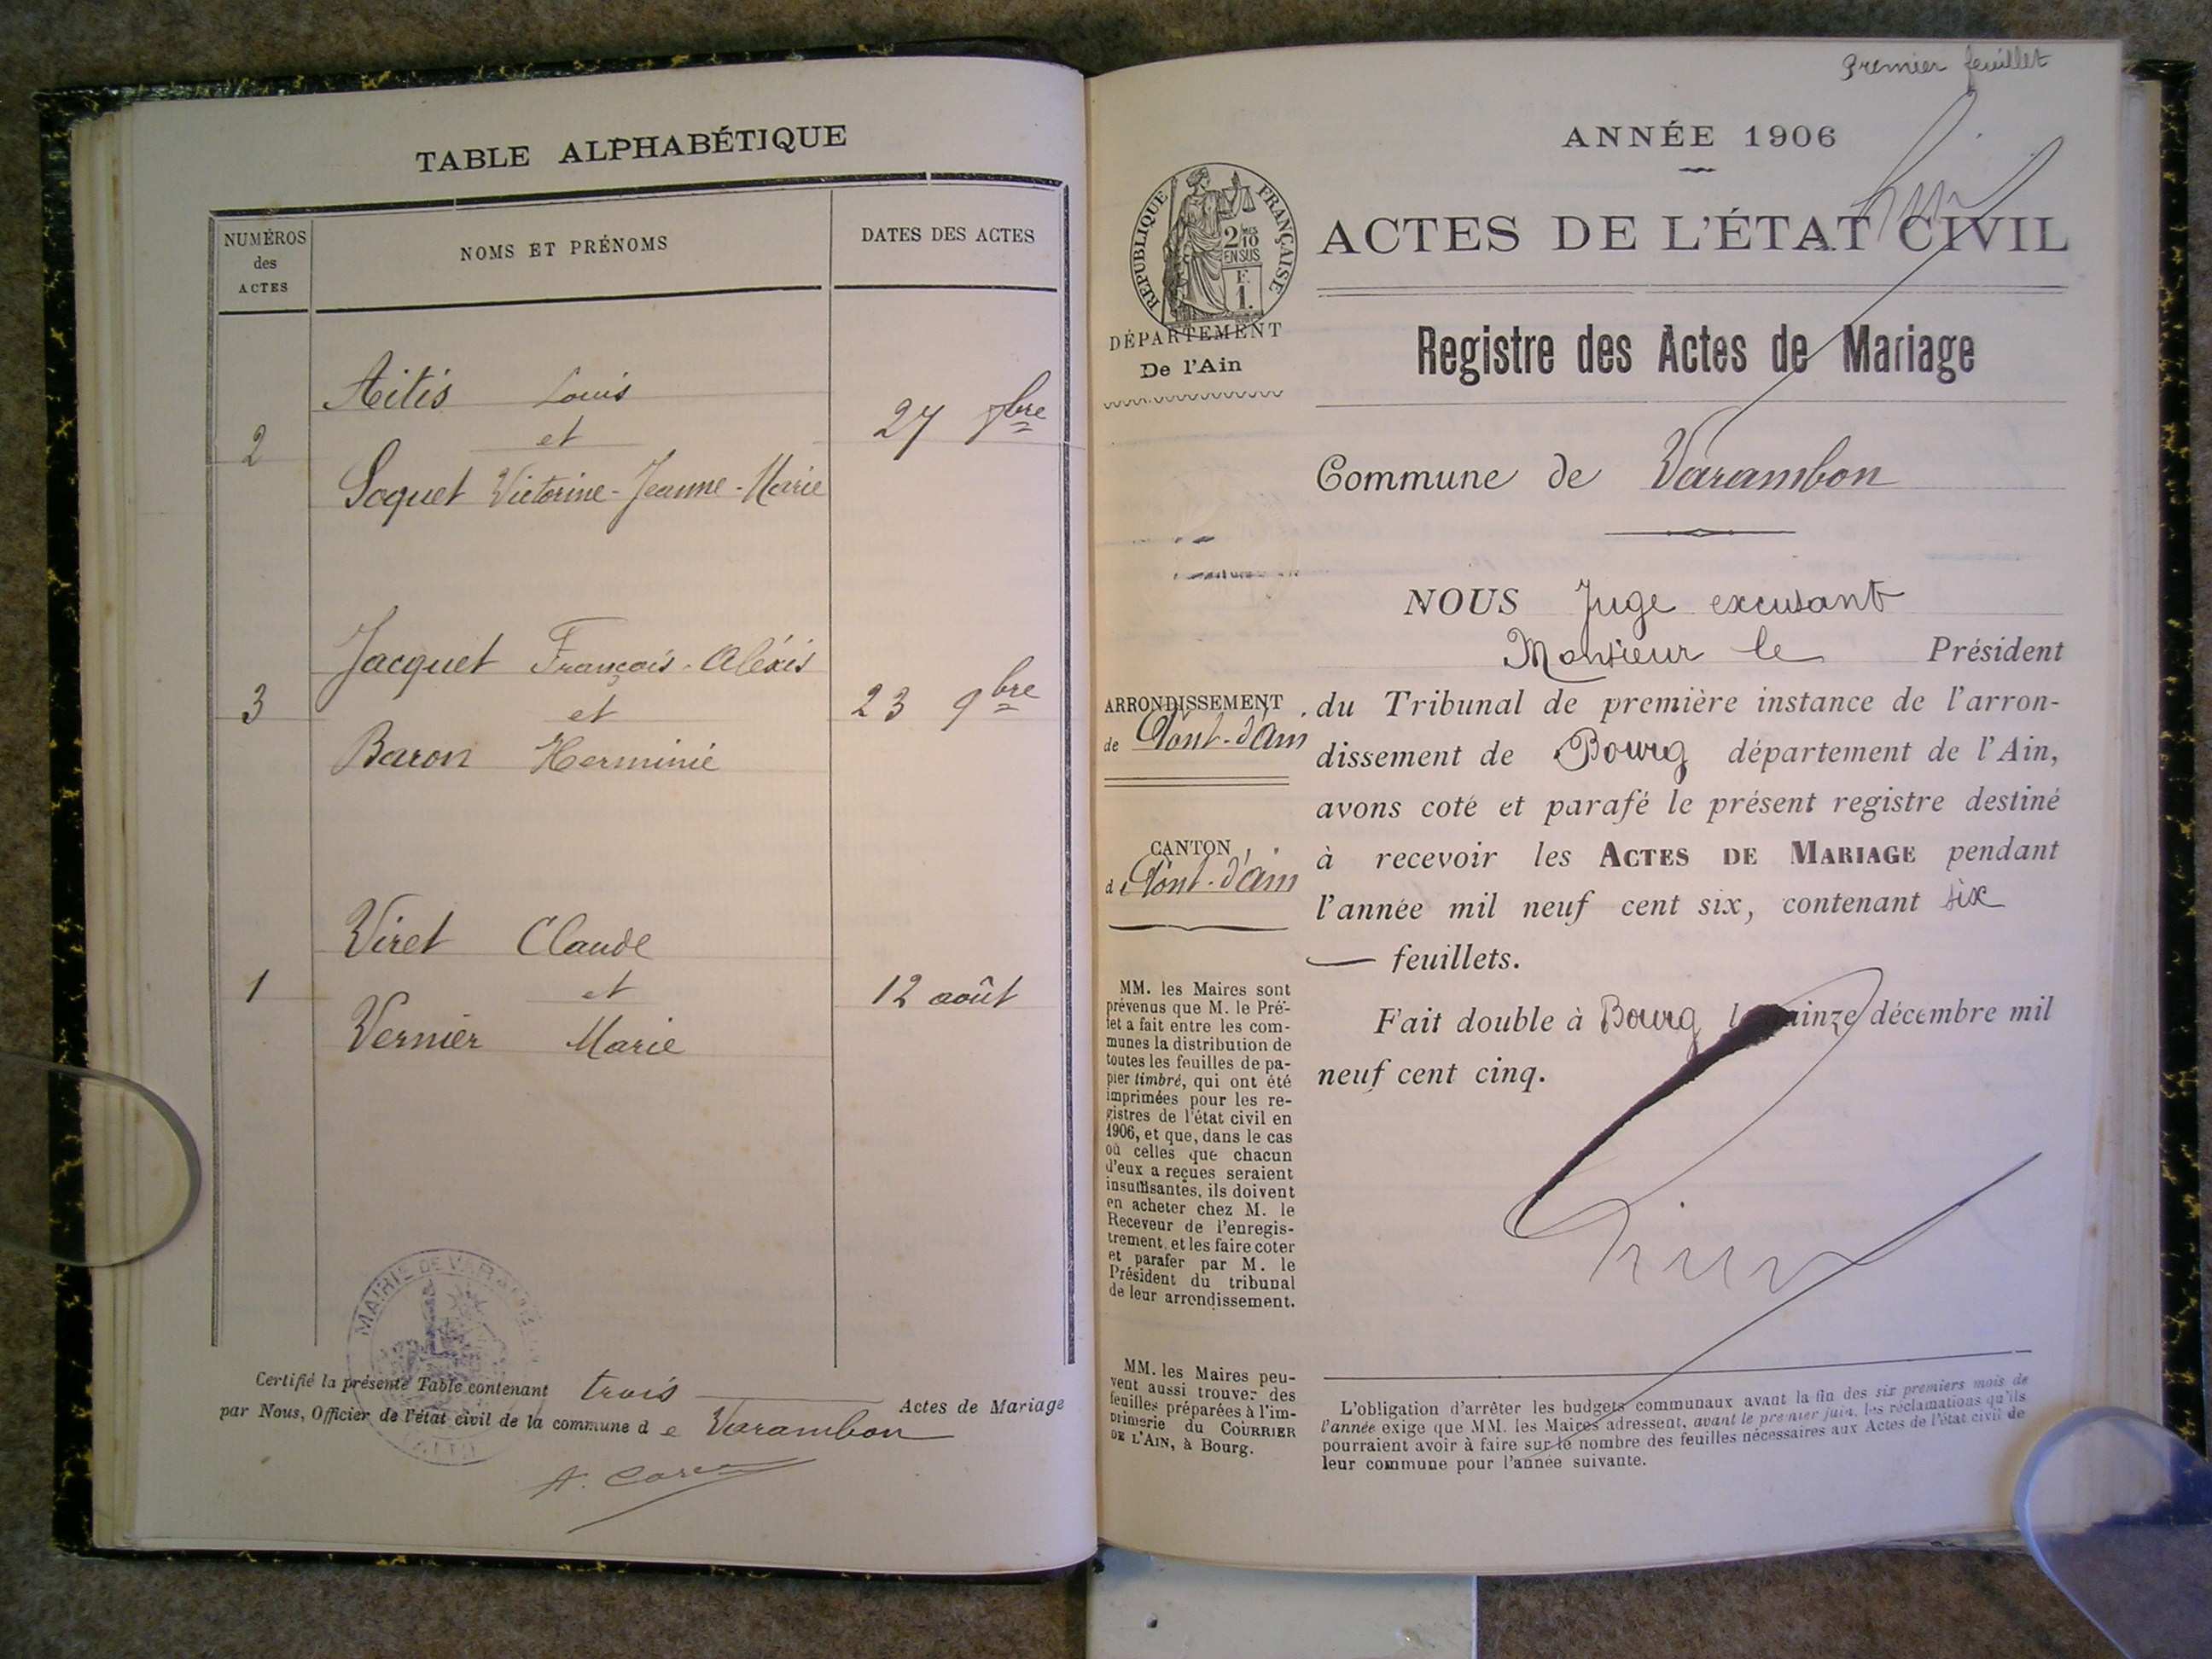 TABLE ALPHABÉTIQUE
NUMÉROS
des
ACTES
NOMS ET PRÉNOMS
DATES DES ACTES
Aitis Louis
et
2
27 7bre
Soquet Victorine-Jeanne-Marie
Jacquet François-Aléxis
et
3
23 9bre
Baron Herminie
Viret Claude
et
1
12 août
Vernier Marie
MAIRIE DE VARAMBON
Certifié la présente Table contenant trois Actes de Mariage
par Nous, Officier de l'état civil de la commune d e Varambon
Premier feuillet
ANNÉE 1906
RÉPUBLIQUE FRANÇAISE
2/10
EN SUS
F.
1.
ACTES DE L'ÉTAT CIVIL
DÉPARTEMENT
De l'Ain
Registre des Actes de Mariage
Commune de Varambon
NOUS Juge excusant
Monsieur le Président
du Tribunal de première instance de l'arron-
dissement de Bourg département de l'Ain,
avons coté et parafé le présent registre destiné
à recevoir les ACTES DE MARIAGE pendant
l'année mil neuf cent six, contenant six
— feuillets.
Fait double à Bourg le quinze décembre mil
neuf cent cinq.
ARRONDISSEMENT
de Pont-d'Ain
CANTON
d Pont-d'Ain
MM. les Maires sont
prévenus que M. le Pré-
fet a fait entre les com-
munes la distribution de
toutes les feuilles de pa-
pier timbré, qui ont été
imprimées pour les re-
gistres de l'état civil en
1906, et que, dans le cas
où celles que chacun
d'eux a reçues seraient
insuffisantes, ils doivent
en acheter chez M. le
Receveur de l'enregis-
trement, et les faire coter
et parafer par M. le
Président du tribunal
de leur arrondissement.
MM. les Maires peu-
vent aussi trouver des
feuilles préparées à l'im-
primerie du COURRIER
DE L'AIN, à Bourg.
L'obligation d'arrêter les budgets communaux avant la fin des six premiers mois de
l'année exige que MM. les Maires adressent, avant le premier juin, les réclamations qu'ils
pourraient avoir à faire sur le nombre des feuilles nécessaires aux Actes de l'état civil de
leur commune pour l'année suivante.